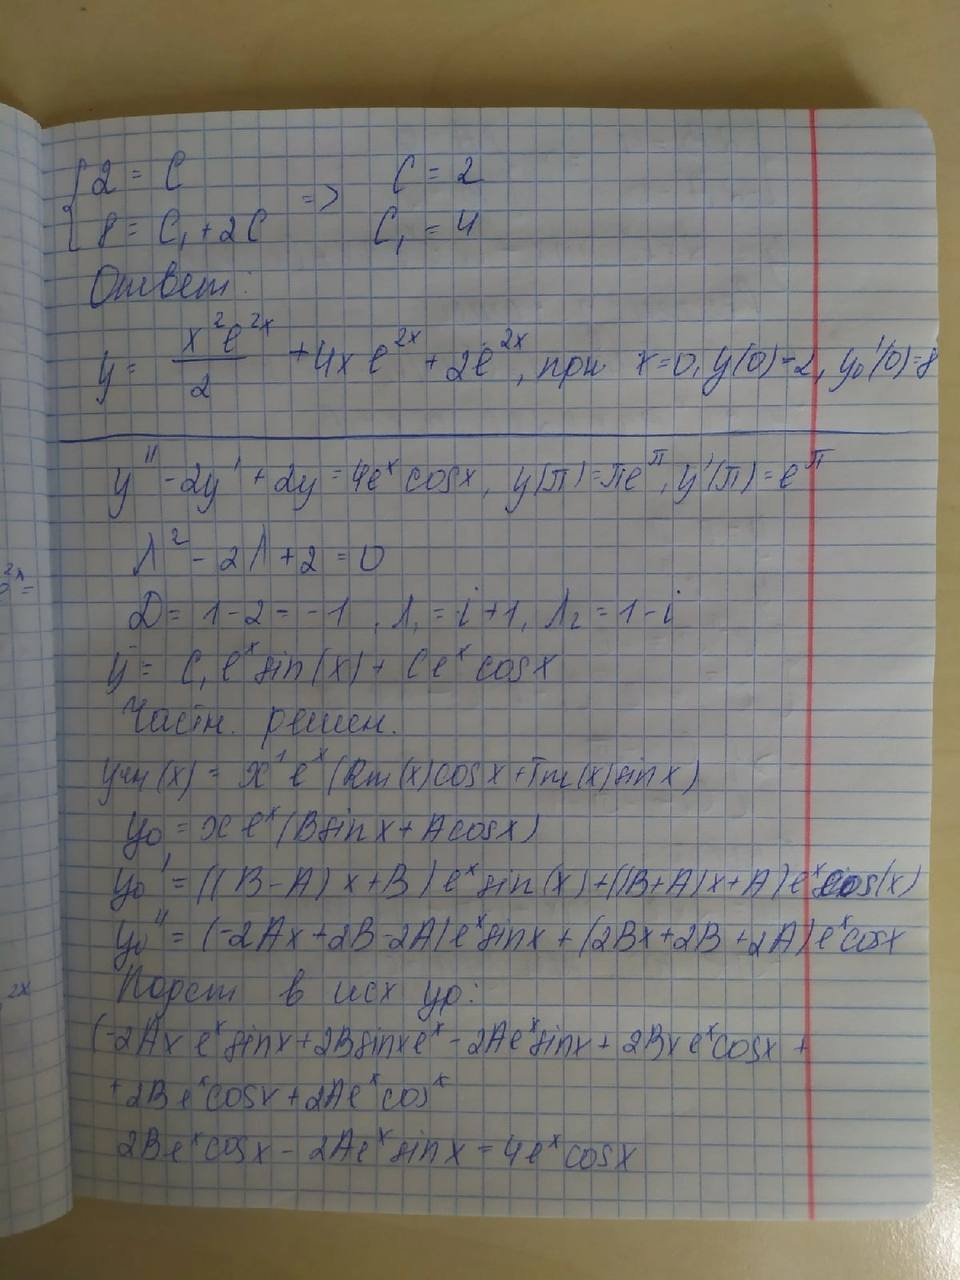 {2 = C => C = 2
8 = C₁ + 2C C₁ = 4
Ответ:
y = x²e²ˣ/2 + 4xe²ˣ + 2e²ˣ, при x=0, y(0)=2, y₀'(0)=8
y'' - 2y' + 2y = 4eˣ cosx, y(π)=πe^π, y'(π)=e^π
λ² - 2λ + 2 = 0
D = 1 - 2 = -1, λ₁ = i+1, λ₂ = 1-i
y = C₁eˣ sin(x) + Ceˣ cosx
Частн. решен.
yчн(x) = x¹eˣ(Rm(x)cosx + Tm(x)sinx)
y₀ = xeˣ(Bsinx + Acosx)
y₀' = ((B-A)x+B)eˣ sin(x) + ((B+A)x+A)eˣ cos(x)
y₀'' = (-2Ax+2B-2A)eˣ sinx + (2Bx+2B+2A)eˣ cosx
Подст в исх ур:
(-2Axeˣ sinx + 2Bsinxeˣ - 2Aeˣ sinx + 2Bxeˣ cosx +
+2Beˣ cosx + 2Aeˣ cosˣ
2Beˣ cosx - 2Aeˣ sinx = 4eˣ cosx